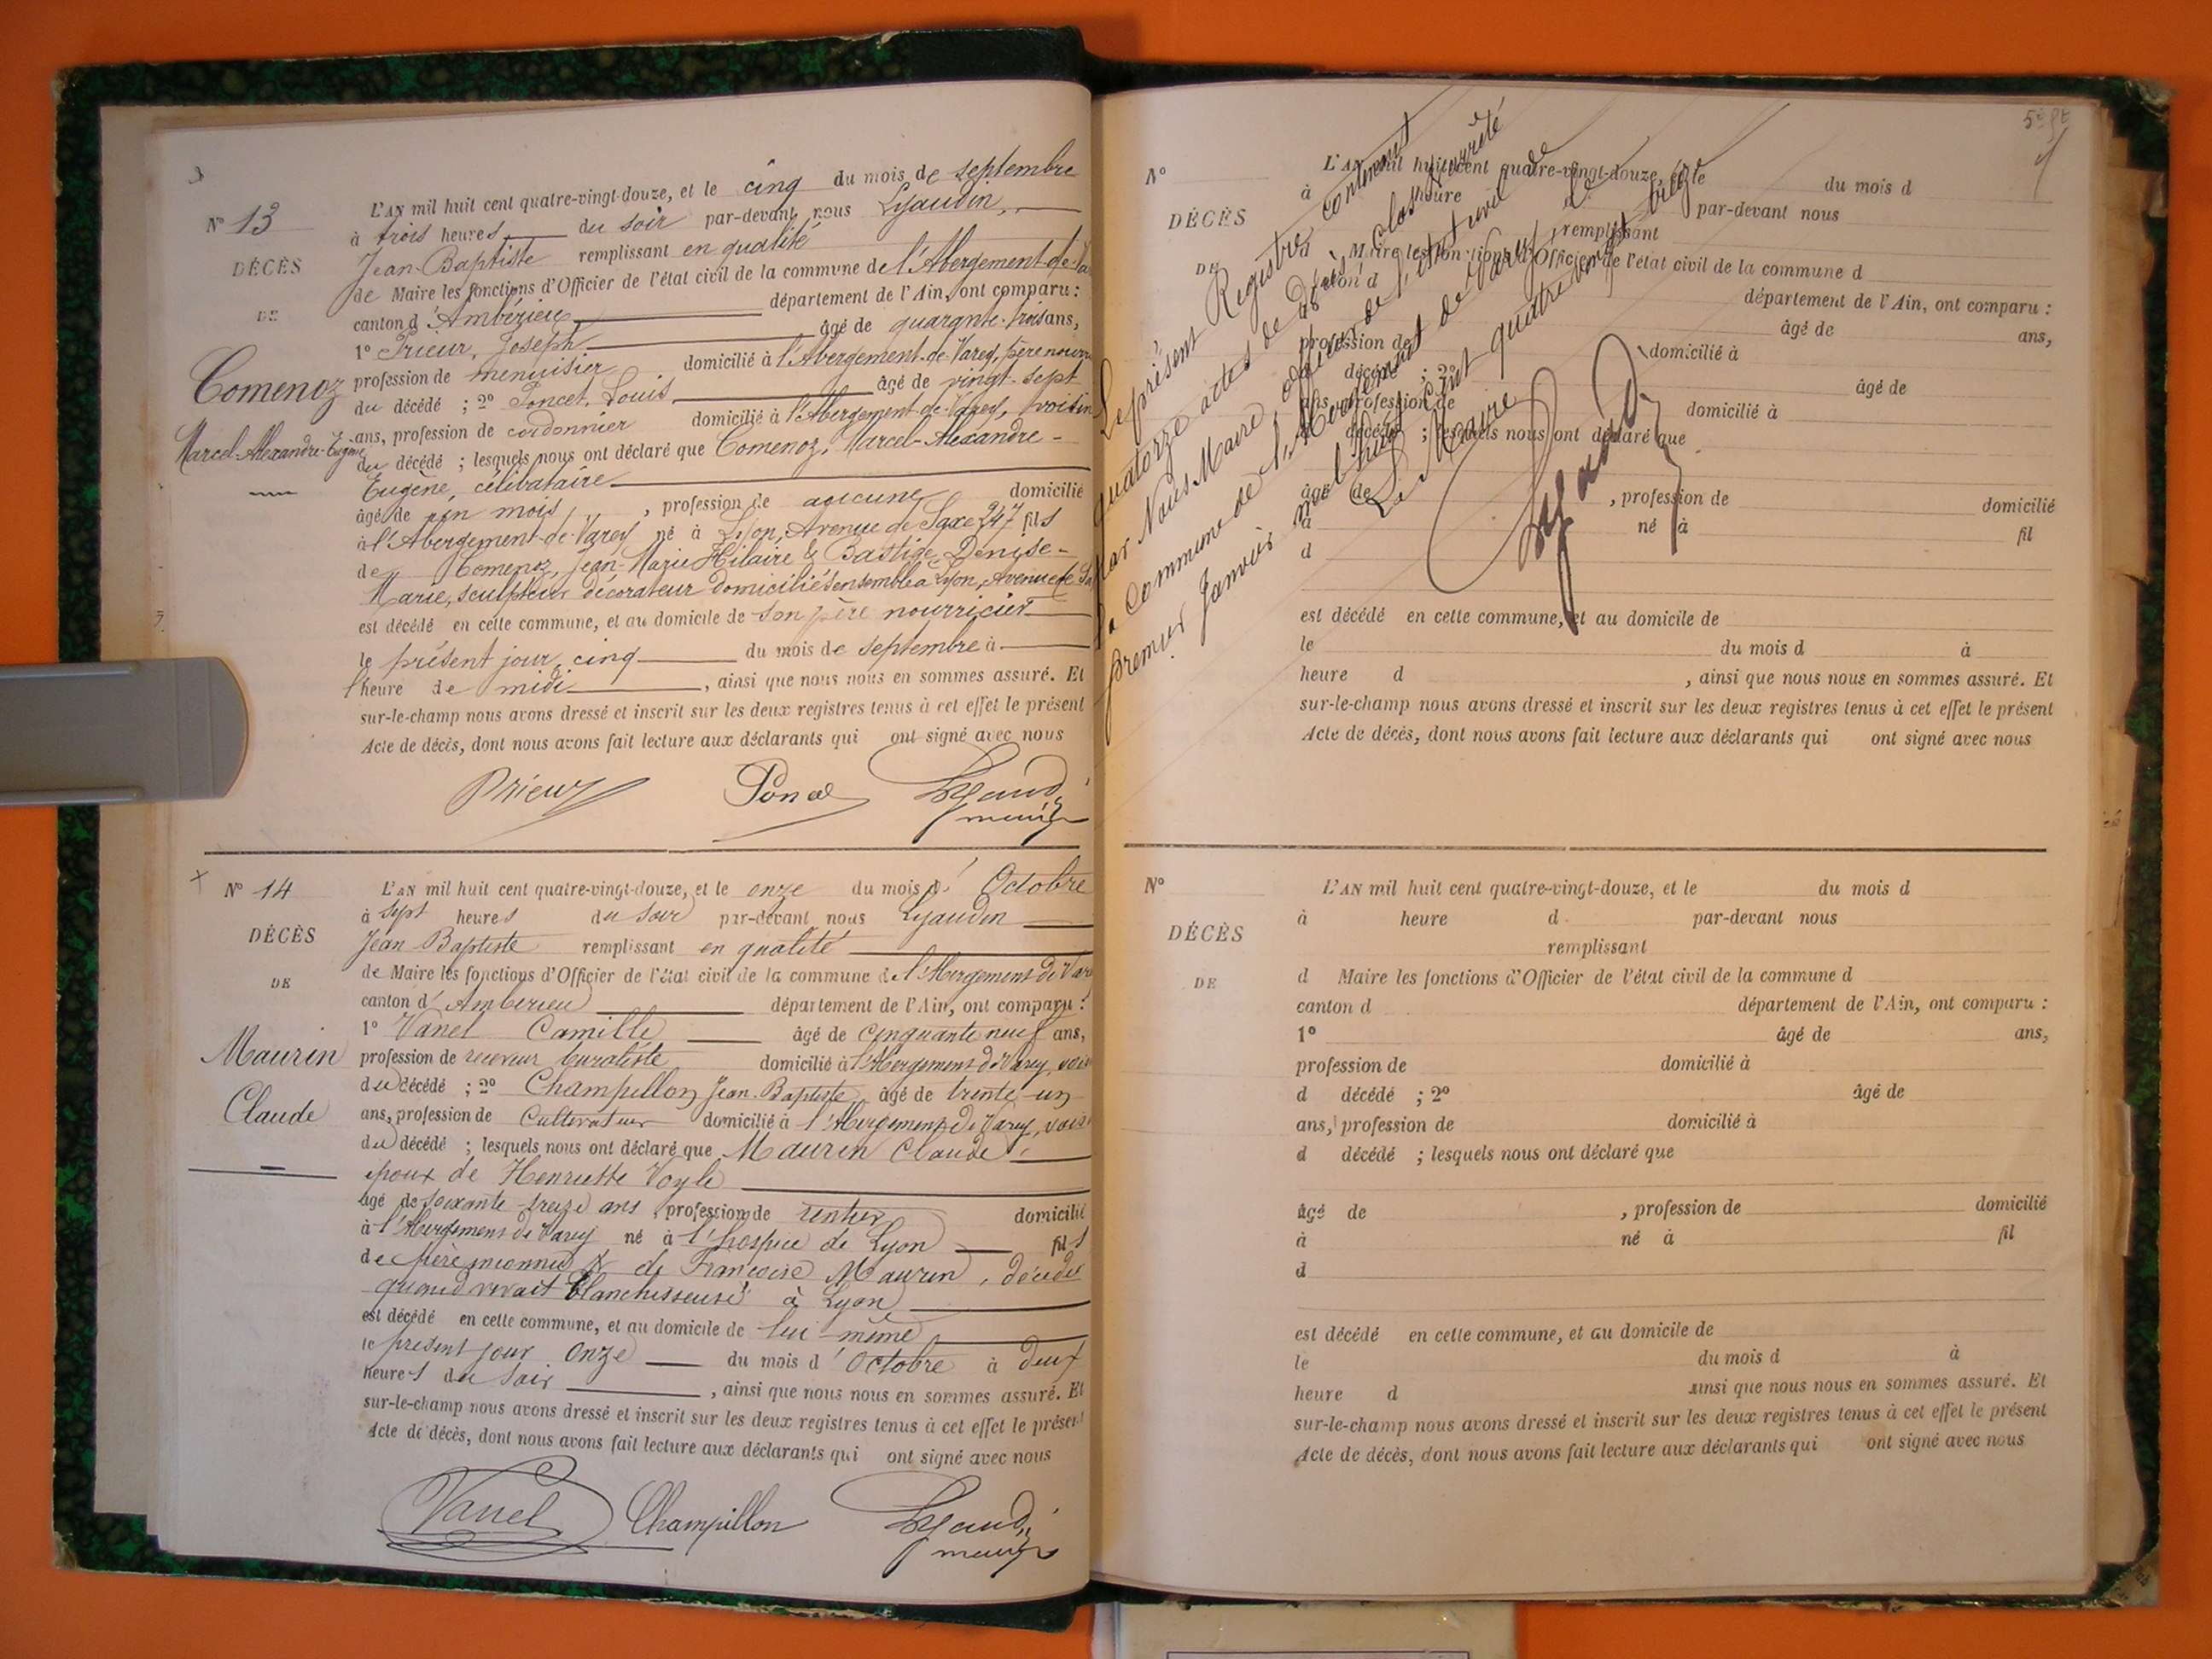 Nº 13
DÉCÈS
DE
Comenoz
Marcel-Alexandre-Eugène
L'AN mil huit cent quatre-vingt-douze, et le cinq du mois de septembre
à trois heures du soir par-devant nous Lyaudin,
Jean-Baptiste remplissant en qualité
de Maire les fonctions d'Officier de l'état civil de la commune de l'Abergement-de-Va
canton d'Ambérieu département de l'Ain, ont comparu :
1º Prieur, Joseph âgé de quarante-trois ans,
profession de menuisier domicilié à l'Abergement-de-Varey, père nourri
du décédé ; 2º Poncet, Louis âgé de vingt-sept
ans, profession de cordonnier domicilié à l'Abergement-de-Varey, voisin
du décédé ; lesquels nous ont déclaré que Comenoz, Marcel-Alexandre-
Eugène, célibataire
âgé de un mois, , profession de aucune domicilié
à l'Abergement-de-Varey né à Lyon, Avenue de Saxe 247 fils
de Comenoz, Jean-Marie Hilaire & Bastide Denise-
Marie, sculpteur décorateur domiciliés ensemble à Lyon, Avenue de Sa
est décédé en cette commune, et au domicile de son père nourricier
le présent jour, cinq du mois de septembre à
l'heure de midi , ainsi que nous nous en sommes assuré. Et
sur-le-champ nous avons dressé et inscrit sur les deux registres tenus à cet effet le présent
Acte de décès, dont nous avons fait lecture aux déclarants qui ont signé avec nous
Prieur Poncet Lyaudin
maire
Nº 14
DÉCÈS
DE
Maurin
Claude
L'AN mil huit cent quatre-vingt-douze, et le onze du mois d'Octobre
à sept heures du soir par-devant nous Lyaudin
Jean Baptiste remplissant en qualité
de Maire les fonctions d'Officier de l'état civil de la commune de l'Abergement de Var
canton d'Ambérieu département de l'Ain, ont comparu :
1º Vanel Camille âgé de cinquante neuf ans,
profession de receveur buraliste domicilié à l'Abergement de Varey, vois
du décédé ; 2º Champillon Jean-Baptiste âgé de trente-un
ans, profession de Cultivateur domicilié à l'Abergement de Varey, vois
du décédé ; lesquels nous ont déclaré que Maurin Claude,
époux de Henriette Voyle
âgé de soixante treize ans , profession de rentier domicilié
à l'Abergement de Varey né à l'hospice de Lyon fils
de père inconnu & de Françoise Maurin, décédée
quand vivait Blanchisseuse à Lyon
est décédé en cette commune, et au domicile de lui-même
le présent jour onze du mois d'Octobre à deux
heures du soir , ainsi que nous nous en sommes assuré. Et
sur-le-champ nous avons dressé et inscrit sur les deux registres tenus à cet effet le présent
Acte de décès, dont nous avons fait lecture aux déclarants qui ont signé avec nous
Vanel Champillon Lyaudin
maire
Le présent Registre contenant
quatorze actes de décès, a été clos & arrêté
par Nous Maire, officier de l'état civil de
la Commune de l'Abergement de Varey, le
premier Janvier mil huit cent quatre vingt treize
Le Maire
Lyaudin
Nº
DÉCÈS
DE
L'AN mil huit cent quatre-vingt-douze, et le du mois d
à heure d par-devant nous
remplissant
d Maire les fonctions d'Officier de l'état civil de la commune d
canton d département de l'Ain, ont comparu :
âgé de ans,
profession de domicilié à
d décédé ; 2º âgé de
ans, profession de domicilié à
d décédé ; lesquels nous ont déclaré que
âgé de , profession de domicilié
à né à fil
d
est décédé en cette commune, et au domicile de
le du mois d à
heure d , ainsi que nous nous en sommes assuré. Et
sur-le-champ nous avons dressé et inscrit sur les deux registres tenus à cet effet le présent
Acte de décès, dont nous avons fait lecture aux déclarants qui ont signé avec nous
Nº
DÉCÈS
DE
L'AN mil huit cent quatre-vingt-douze, et le du mois d
à heure d par-devant nous
remplissant
d Maire les fonctions d'Officier de l'état civil de la commune d
canton d département de l'Ain, ont comparu :
1º âgé de ans,
profession de domicilié à
d décédé ; 2º âgé de
ans, profession de domicilié à
d décédé ; lesquels nous ont déclaré que
âgé de , profession de domicilié
à né à fil
d
est décédé en cette commune, et au domicile de
le du mois d à
heure d ainsi que nous nous en sommes assuré. Et
sur-le-champ nous avons dressé et inscrit sur les deux registres tenus à cet effet le présent
Acte de décès, dont nous avons fait lecture aux déclarants qui ont signé avec nous